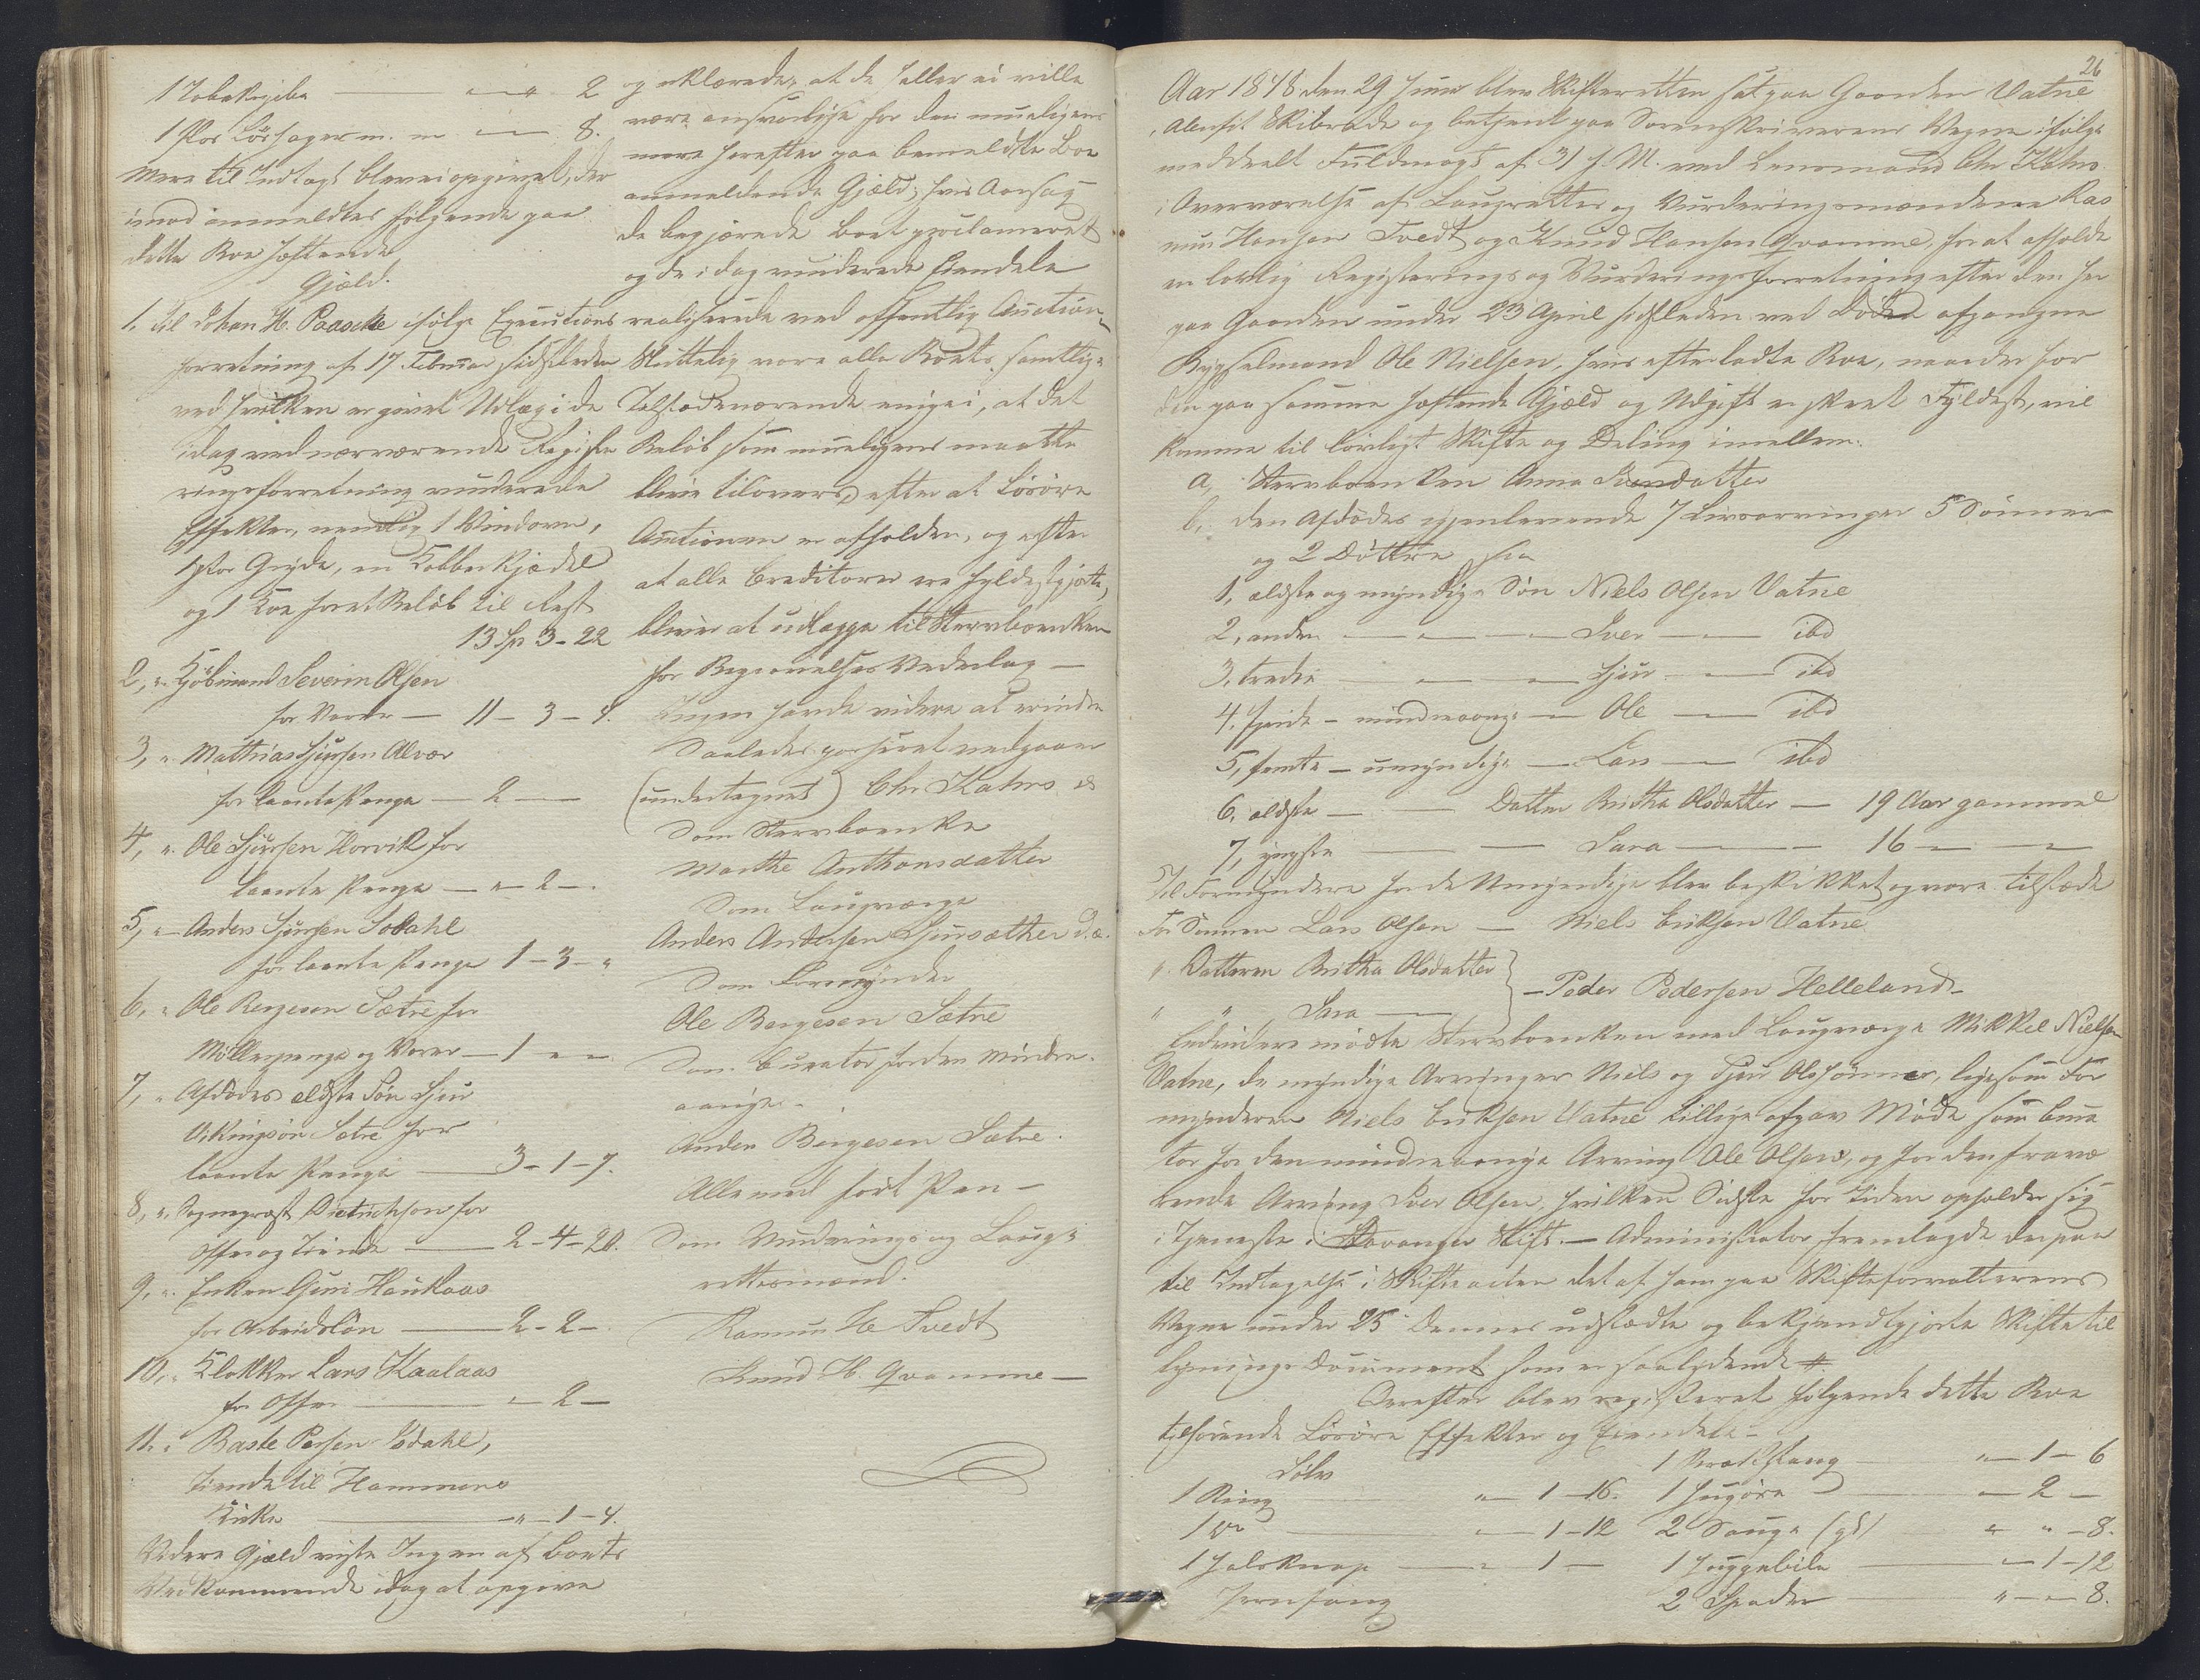 1 Tobakspibe — " — " — 2
1 Par Løssager m. m — " — 8.
Mere til Indtægt blev ei opgivet, der
imod anmeldtes følgende paa
dette Boe heftende
Gjæld.
1, til Johan H. Paasche ifølge Executions
forretning af 17 Februar sidstleden
ved hvilken er givet Udlæg i de
idag ved nærværende Registe
ringsforretning vurderede
Effekter, nemlig 1 Vindovn,
1 stor Gryde, en Kobberkjedel
og 1 Koe for et Beløb til Rest
13 Sp 3 - 22
2, " Kjøbmand Severin Olsen
for Varer — 11 - 3 - 4.
3, " Mathias Sjursen Alvær
for laante Penge — 2 —
4, " Ole Sjursen Horvik for
laante Penge — " - 2 - .
5, " Anders Sjursen Isdahl
for laante Penge 1 - 3 - "
6, " Ole Børgesen Sætre for
Møllepenge og Varer — 1 - " - "
7, " Afdødes eldste Søn Sjur
Vikingsøn Sætre for
laante Penge — 3 - 1 - 7.
8, " Sognepræst Dietrichson for
Offer og Tiende — 2 - 4 - 20.
9, " Enken Guri Haukaas
for Arbeidsløn — 2 - 2 -
10, " Klokker Lars Kaalaas
for Offer — " - 2 -
11, " Baste Persen Isdahl,
tiende til Hammers
Kirke — " - 1 - 4.
Videre Gjæld vidste Ingen af Boets
Vedkommende idag at opgive
og erklærede, at de heller ei ville
være ansvarlige for den mueligens
mere herefter paa bemeldte Boe
anmeldende Gjæld; hvis Aarsag
de begjærede Boet proclameret
og de i dag vurderede Eiendele
realiserede ved offentlig Auction,
Sluttelig vare alle Boets samtlige
Tilstedeværende enige i, at det
Beløb som mueligens maatte
blive tilovers, efter at Løsøre
Auctionen er afholden, og efter
at alle Creditorer ere fyldestgjorte,
bliver at udlægge til Stervboenken
for Begravelses Vederlag —
Ingen havde videre at erindre
Saaledes passeret vedgaaer
(undertegnet) Chr Kahrs
Som Sterboenke
Marthe Anthonsdatter
Som Laugværge
Anders Andersen Sjursæther d.æ.
Som Formynder
Ole Børgesen Sætre
Som Curator for den mindre-
aarige
Anders Børgesen Sætre.
Alle med ført Pen —
Som Vurderings og Laug-
rettesmænd.
Rasmus H Tvedt
Knud H. Qvamme —
26
Aar 1848 den 29 Juni blev Skifteretten sat paa Gaarden Vatne
i Alenfit Skibrede og betjent paa Sorenskriverens Vegne ifølge
meddeelt Fuldmagt af 31 f. M. ved Lensmand Chr Kahrs
i Overværelse af Laugrettes og Vurderingsmændene Ras
mus Hansen Tvedt og Knud Hansen Qvamme, for at afholde
en lovlig Registerings og Vurderingsforretning efter den her
paa Gaarden under 23 April sidstleden ved Døden afgangne
Bygselmand Ole Nielsen, hvis efterladte Boe, naar der for
den paa samme heftende Gjæld og Udgift er skeet Fyldest, vil
komme til lovligt Skifte og Deling imellem.
a, Sterboenken Anna Svendatter
b, den Afdødes igjenlevende 7 Livsarvinger 5 Sønner
og 2 Døttre saa
1, ældste og myndige Søn Niels Olsen Vatne
2, anden — — — Iver — ibd
3, tredie — — — Sjur — ibd
4. fjerde - mindreaarige — Ole — ibd
5, femte - umyndige — Lars — ibd
6, ældste — Datter Britha Olsdatter — 19 Aar gammel
7, yngste — — Sara — — 16 — —
Til Formyndere for de Umyndige blev beskikket og vare tilstede
For Sønnen Lars Olsen — Niels Eriksen Vatne
" Datteren Britha Olsdatter
" " Sara —
- Peder Pedersen Helleland -
Endvidere mødte Sterboenken med Laugværge Mikkel Nielsen
Vatne, de myndige Arvinger Niels og Sjur Olssønner, ligesom For
mynderen Niels Eriksen Vatne tillige afgav Møde som Cura
tor for den mindreaarige Arving Ole Olsen, og for den fravæ
rende Arving Iver Olsen, hvilken Sidste for Tiden opholder sig
i Tjeneste i Stavanger Stift. — Administrator fremlagde derpaa
til Indtagelse i Skifteacten det af ham paa Skifteforvalterens
Vegne under 25 Dennes udstædte og bekjendtgjorte Skiftetil
lysnings Document som er saalydende #.
Derefter blev registeret følgende dette Boe
tilhørende Løsøre Effekter og Eiendele
Sølv
1 Ring — " - 1 - 16.
1 do — " - 1 - 12
1 Halsknap — " - 1 -
Jernfang
1 Brækstang — " - 1 - 6
1 Hugøxe — " - 2 -
2 Sauge (gl) " " - 8.
1 Huggebile — " - 1 - 12
2 Spader — " - " - 8.